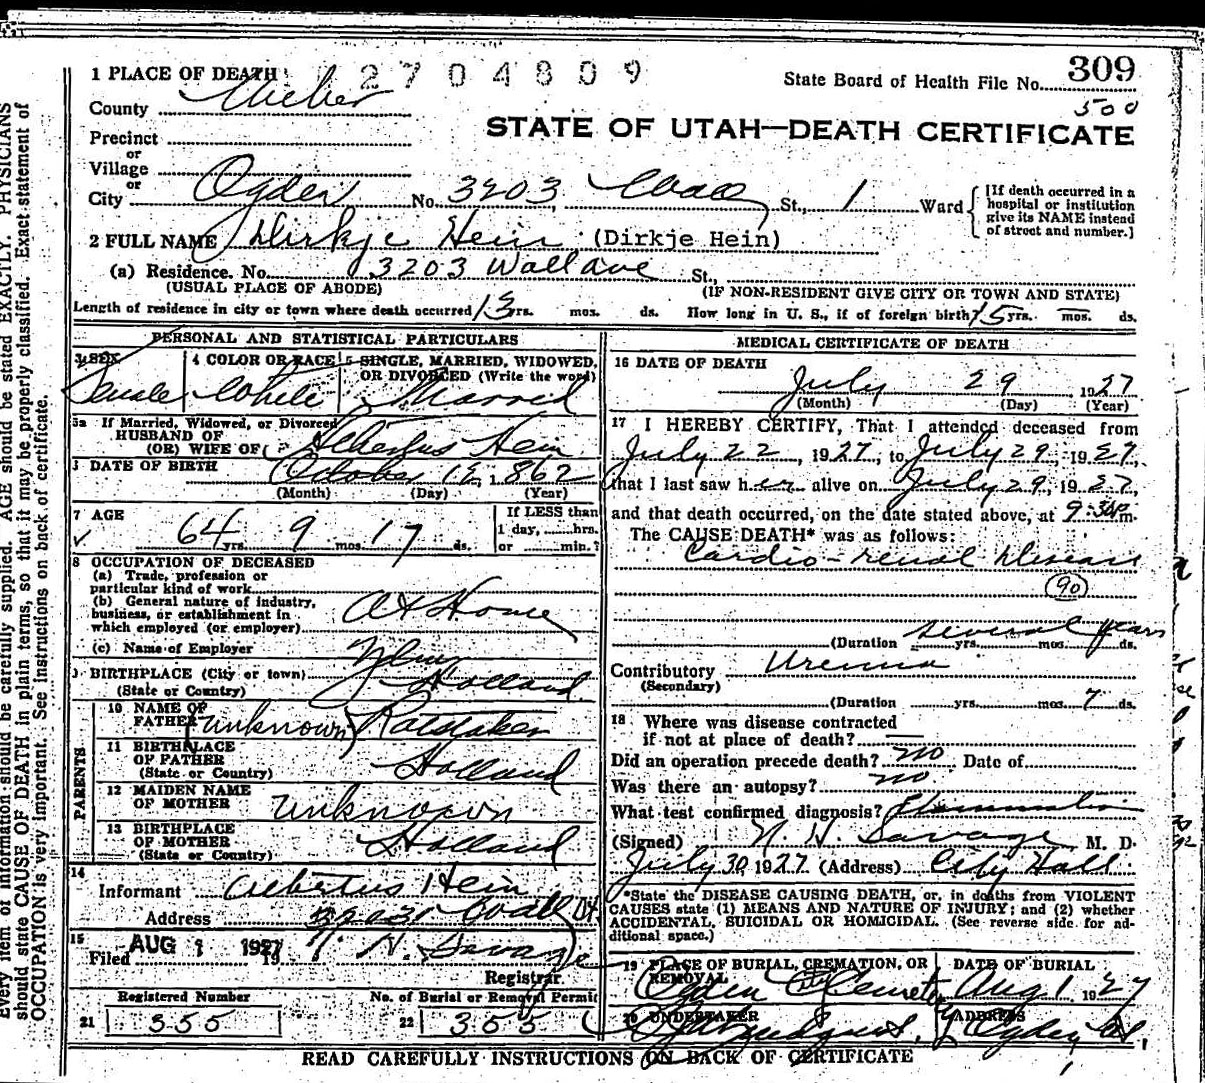 1 PLACE OF DEATH 2704809
State Board of Health File No. 309
County Weber
500
STATE OF UTAH—DEATH CERTIFICATE
Precinct
or
Village
or
City Ogden No. 3203 Wall St., 1 Ward
[If death occurred in a
hospital or institution
give its NAME instead
of street and number.]
2 FULL NAME Dirkje Hein (Dirkje Hein)
(a) Residence. No. 3203 Wall ave St.,
(USUAL PLACE OF ABODE) (IF NON-RESIDENT GIVE CITY OR TOWN AND STATE)
Length of residence in city or town where death occurred 13 yrs. mos. ds. How long in U. S., if of foreign birth? 15 yrs. mos. ds.
PERSONAL AND STATISTICAL PARTICULARS
3 SEX 4 COLOR OR RACE 5 SINGLE, MARRIED, WIDOWED,
OR DIVORCED (Write the word)
Female White Married
5a If Married, Widowed, or Divorced
HUSBAND OF
(OR) WIFE OF Hein
DATE OF BIRTH October 12, 1862
(Month) (Day) (Year)
7 AGE 64 yrs. 9 mos. 17 ds.
If LESS than
1 day, hrs.
or min.?
8 OCCUPATION OF DECEASED
(a) Trade, profession or
particular kind of work
(b) General nature of industry,
business, or establishment in
which employed (or employer) At Home
(c) Name of Employer
9 BIRTHPLACE (City or town)
(State or Country) Holland
PARENTS
10 NAME OF
FATHER (unknown)
11 BIRTHPLACE
OF FATHER
(State or Country) Holland
12 MAIDEN NAME
OF MOTHER unknown
13 BIRTHPLACE
OF MOTHER
(State or Country) Holland
14
Informant Albertus Hein
Address 3203 Wall
15
Filed AUG 1 1927 N. H. Savage
Registrar
Registered Number No. of Burial or Removal Permit
21 355 22 355
MEDICAL CERTIFICATE OF DEATH
16 DATE OF DEATH
July 29 1927
(Month) (Day) (Year)
17 I HEREBY CERTIFY, That I attended deceased from
July 22, 1927, to July 29, 1927,
that I last saw her alive on July 29, 1927,
and that death occurred, on the date stated above, at 9:30 P m.
The CAUSE DEATH* was as follows:
Cardio-renal disease
90
(Duration several years yrs. mos. ds.
Contributory Uremia
(Secondary)
(Duration yrs. mos. 7 ds.
18 Where was disease contracted
if not at place of death?
Did an operation precede death? no Date of
Was there an autopsy? no
What test confirmed diagnosis?
(Signed) N. H. Savage M. D.
July 30 1927 (Address) City Hall
*State the DISEASE CAUSING DEATH, or, in deaths from VIOLENT
CAUSES state (1) MEANS AND NATURE OF INJURY; and (2) whether
ACCIDENTAL, SUICIDAL OR HOMICIDAL. (See reverse side for ad-
ditional space.)
19 PLACE OF BURIAL, CREMATION, OR
REMOVAL
DATE OF BURIAL
Ogden City Cemetery Aug 1 1927
20 UNDERTAKER ADDRESS
Ogden
READ CAREFULLY INSTRUCTIONS ON BACK OF CERTIFICATE
Every item of information should be carefully supplied. AGE should be stated EXACTLY. PHYSICIANS
should state CAUSE OF DEATH in plain terms, so that it may be properly classified. Exact statement of
OCCUPATION is very important. See instructions on back of certificate.